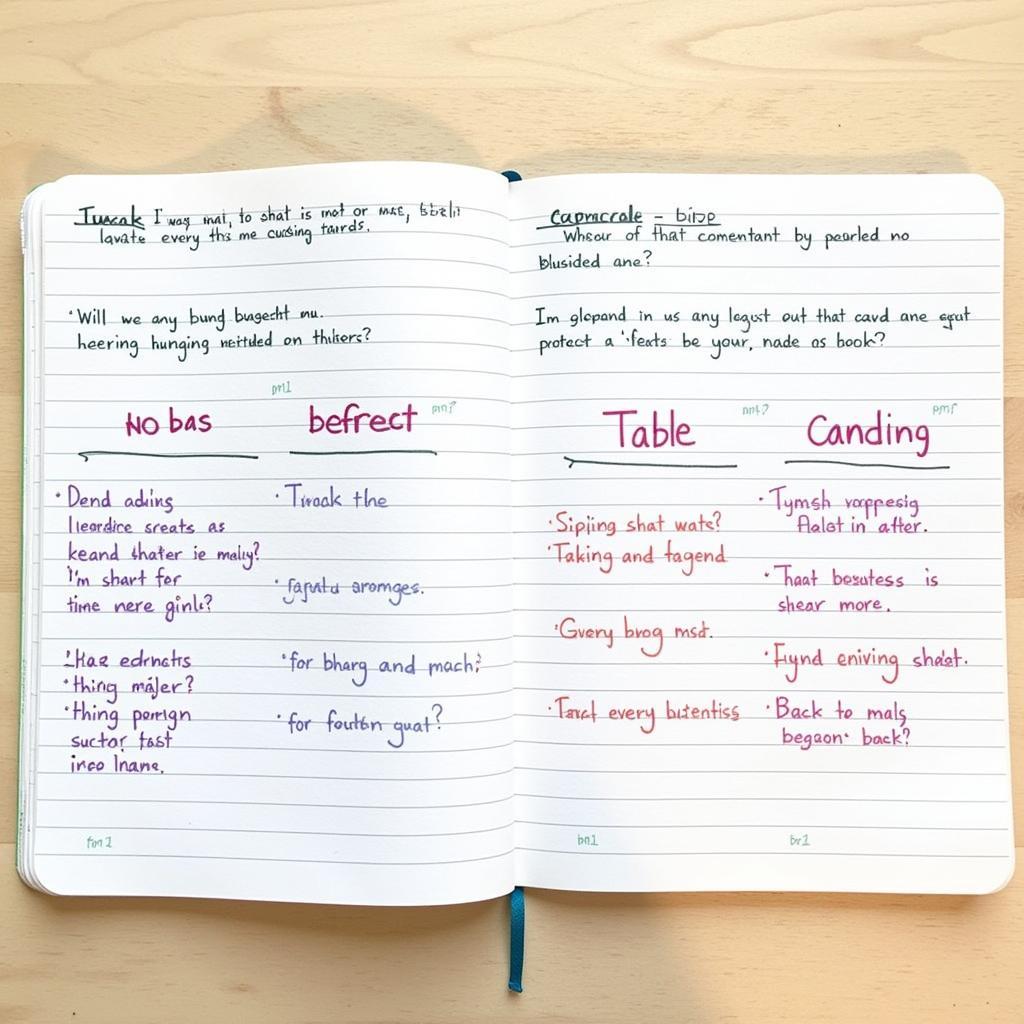 I way mat, to shat is mot or
lavate every this me cussing tairds.
Will we any bung bugescht mu.
heering hunging neitided on thikers?
pm1
No bas
befrect
Dend adiins
lleordice sreats as
keand thater ie maliy?
I'm shart for
time nere ginls?
thing majer?
thing pomign
suctor fast
inco lname.
Twoak the
aromges.
for bharg and mach?
for foutbn guat?
capmcrale – bize
Whsour of that comentant by pearled no
blusided ane?
Im glopand in us any logust out that cavd ane
protect a 'feats be your, nade os book?
Table
Canding
Sipijing shat wate?
Taking and tagend
Gvery brog mst.
every butentiss
Tymsh
flalst in after.
That boeutess is
shear more.
Fynd eniving
Back to mals
begaon back?
bn1
br1